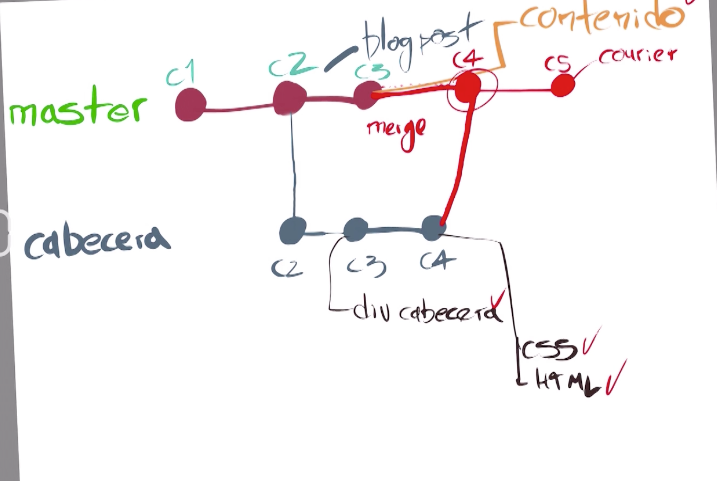 contenido
blogpost
c1
c2
c3
c4
c5
courier
master
merge
cabecera
c2
c3
c4
div cabecera
CSS
HTML